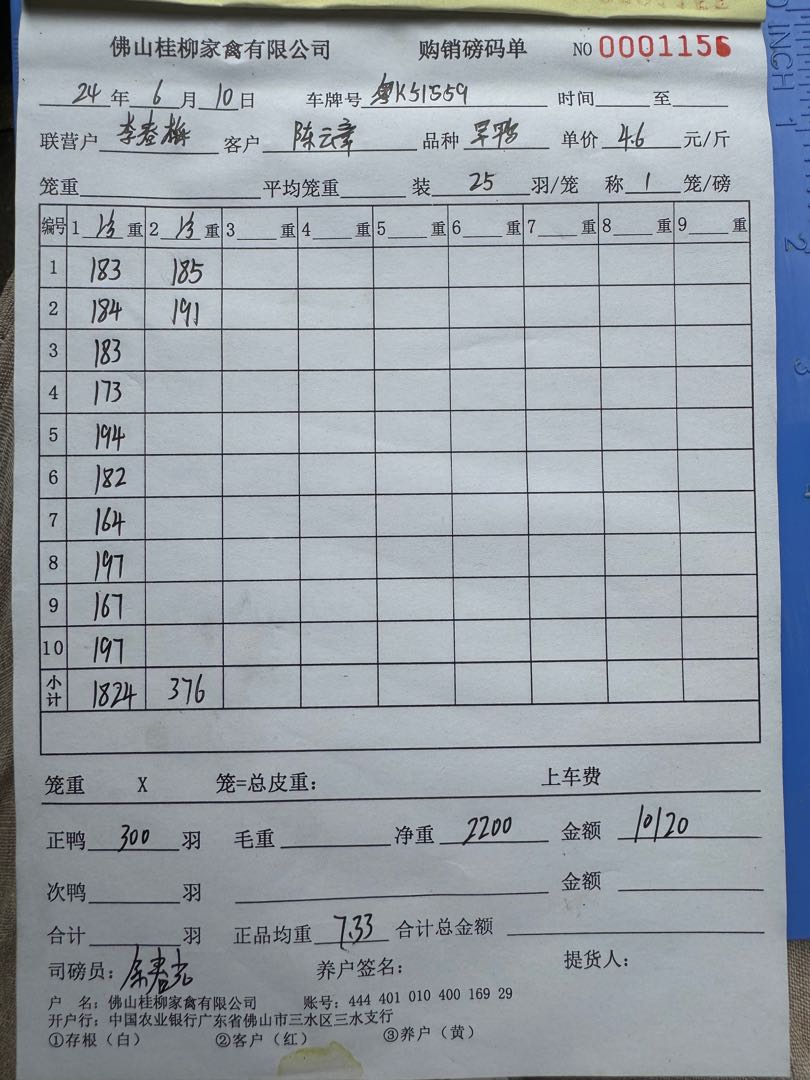 佛山桂柳家禽有限公司 购销磅码单 NO 0001156
24年6月10日 车牌号 粤K51559 时间 至
联营户 李春梅 客户 陈云章 品种 单价 4.6 元/斤
笼重 平均笼重 装 25 羽/笼 称 1 笼/磅
编号 1 重 2 重 3 重 4 重 5 重 6 重 7 重 8 重 9 重
1 183 185
2 184 191
3 183
4 173
5 194
6 182
7 164
8 197
9 167
10 197
小计 1824 376
笼重 X 笼=总皮重: 上车费
正鸭 300 羽 毛重 净重 2200 金额 10120
次鸭 羽 金额
合计 羽 正品均重 7.33 合计总金额
司磅员: 养户签名: 提货人:
户 名: 佛山桂柳家禽有限公司 账号: 444 401 010 400 169 29
开户行: 中国农业银行广东省佛山市三水区三水支行
①存根（白） ②客户（红） ③养户（黄）